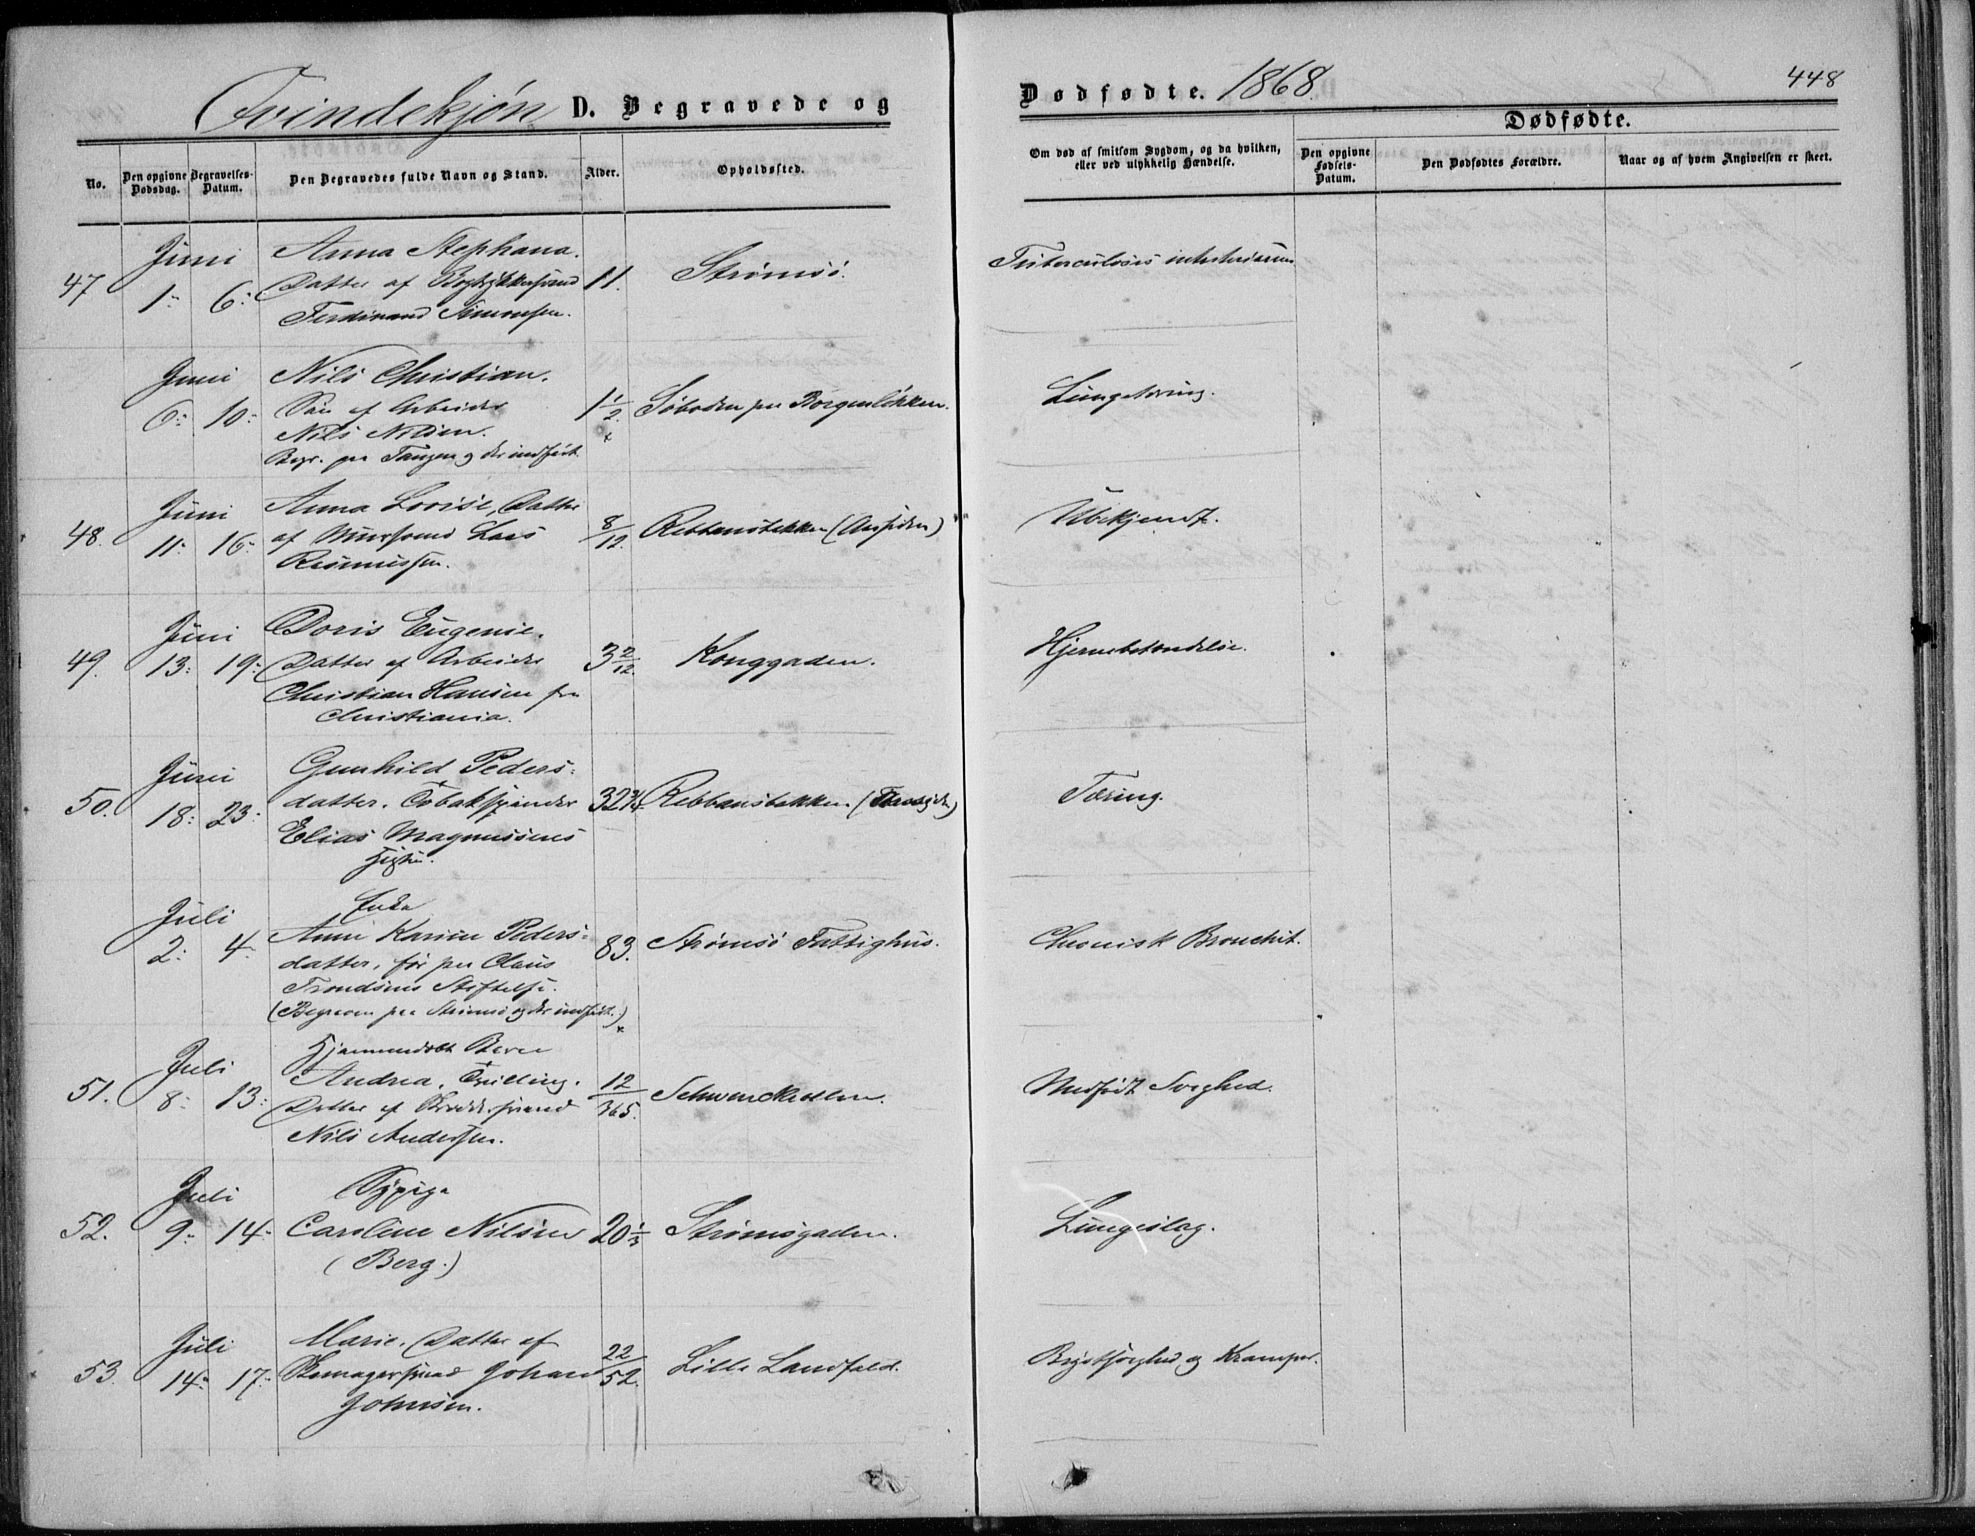 Qvindekjøn D. Begravede og
Dødfødte. 1868. 448
No. Den opgivne Dødsdag. Begravelses-Datum. Den Begravedes fulde Navn og Stand. Alder. Opholdssted.
Om død af smitsom Sygdom, og da hvilken, eller ved ulykkelig Hændelse.
Dødfødte.
Den opgivne Fødsels-Datum. Den Dødfødtes Forældre. Naar og af hvem Angivelsen er skeet.
47 Juni 1: 6: Anna Stephana.
Datter af Bogtrykkersvend 11. Strømsö.
Ferdinand Simonsen.
Tuberculosis
Juni 6: 10: Nils Christian.
Søn af Arbeider 1 1/2 Söboden paa Borgenløkken.
Nils Nilsen. x
Begr. paa Tangen og der indført.
Lungetæring.
48. Juni 11: 16: Anna Lovise, Datter
af Mursvend Lars 8/12. Rebbansbakken
Rasmussen.
Ubekjendt.
49. Juni 13: 19: Doris Eugenie.
Datter af Arbeider 3 2/12. Konggaden.
Christian Hansen fra
Christiania.
Hjernebetændelse.
50. Juni 18: 23: Gunhild Peders-
datter. Tobakspinder 32 3/4 Rebbansbakken.
Elias Magnussens
Hustru.
Tæring.
Juli 2: 4: Enke
Anne Karine Peders- 83. Strømsö Fattighus.
datter, før paa Claus
Trondsens Stiftelse.
(Begraven paa Strömsö og der indført.) x
Chronisk Bronchit.
51. Juli 8: 13: Hjemmendøbt Baren
Andrea, Tvilling. 12/365. Schwenckedlen.
Datter af Skreddersvend
Nils Andersen.
Medfødt Svaghed.
52. Juli 9: 14: Sypige
Caroline Nilsen 20 1/3 Strømsgaden.
(Berg.)
Lungeslag.
53. Juli 14: 17: Marie. Datter af
Skomagersvend Johan 22/52. Lille Landfald.
Johnsen.
Brystsvaghed og Kramper.